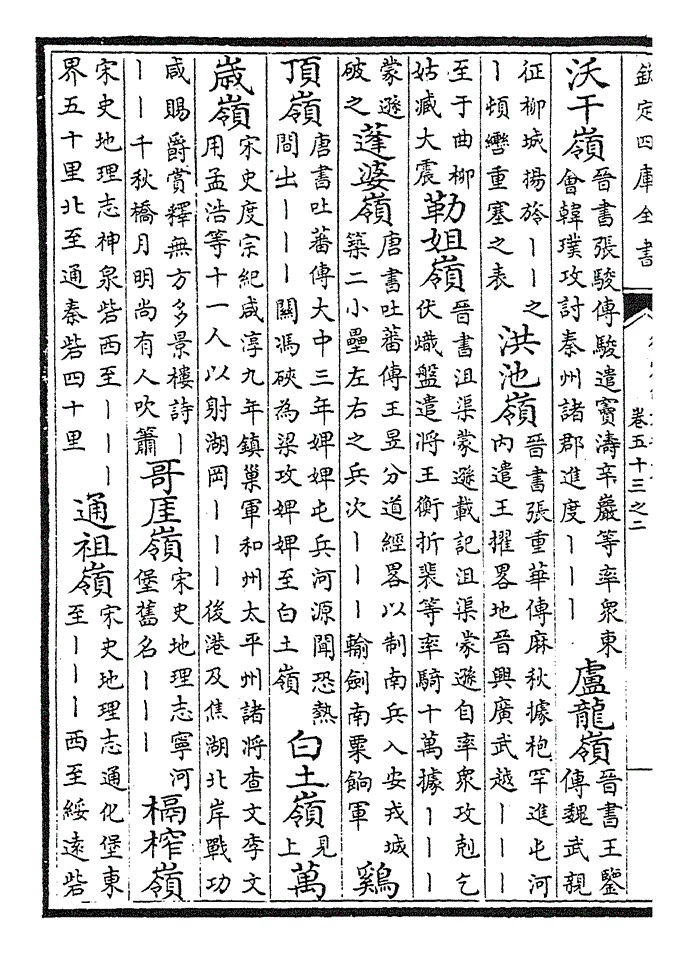 欽定四庫全書
卷五十三之二
沃干嶺晉書張駿傳駿遣竇濤辛巖等率衆東會韓璞攻討秦州諸郡進度丨丨丨盧龍嶺晉書王鑒傳魏武親
征柳城揚旍丨丨之丨頓轡重塞之表洪池嶺晉書張重華傳麻秋據枹罕進屯河內遣王擢畧地晉興廣武越丨丨丨
至于曲柳姑臧大震勒姐嶺晉書沮渠蒙遜載記沮渠蒙遜自率衆攻剋乞伏熾盤遣將王衡折裴等率騎十萬據丨丨丨
蒙遜破之蓬婆嶺唐書吐蕃傳王昱分道經畧以制南兵入安戎城築二小壘左右之兵次丨丨丨輸劍南粟餉軍鷄
頂嶺唐書吐蕃傳大中三年婢婢屯兵河源聞恐熱間出丨丨丨關馮硤為梁攻婢婢至白土嶺白土嶺見上萬
歳嶺宋史度宗紀咸淳九年鎮巢軍和州太平州諸將查文李文用孟浩等十一人以射湖岡丨丨丨後港及焦湖北岸戰功
咸賜爵賞釋無方多景樓詩丨丨丨千秋橋月明尚有人吹簫哥厓嶺宋史地理志寧河堡舊名丨丨丨槅榨嶺
宋史地理志神泉砦西至丨丨丨界五十里北至通秦砦四十里通祖嶺宋史地理志通化堡東至丨丨丨西至綏遠砦